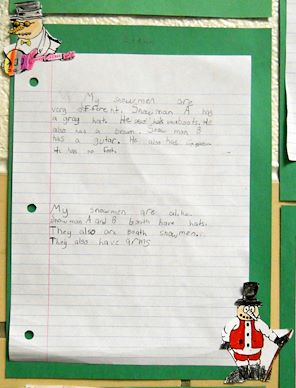 My snowmen are
very different. Snowman A has
a gray hat. He also has boots. He
also has a broom. Snow man B
has a guitar. He also has
He has no feet.
My snowmen are alike.
Snowman A and B booth have hats.
They also are boath snowmen.
They also have arms